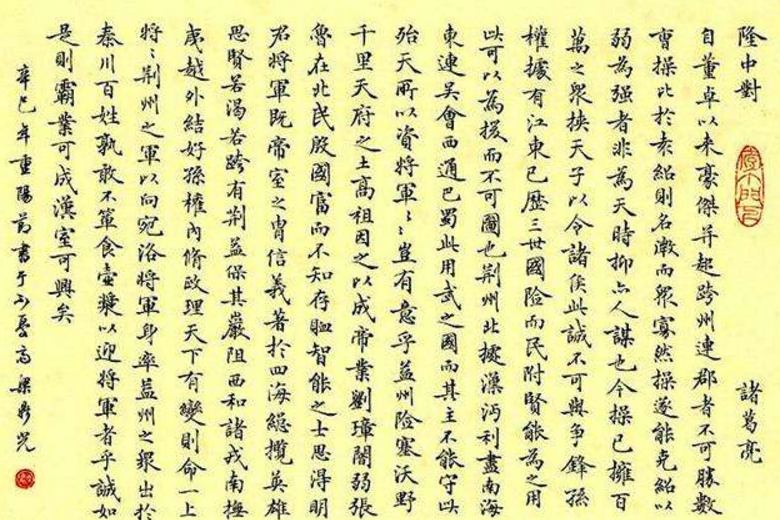 隆中對 諸葛亮
自董卓以来豪傑并起跨州連郡者不可勝數
曹操比於袁紹則名微而眾寡然操遂能克紹以
弱為强者非為天時抑亦人謀也今操已擁百
萬之眾挾天子以令諸侯此誠不可與争鋒孫
權據有江東已歷三世國险而民附賢能為之用
此可以為援而不可圖也荆州北據漢沔利盡南海
東連吴會西通巴蜀此用武之國而其主不能守此
殆天所以資將軍〻豈有意乎益州险塞沃野
千里天府之土高祖因之以成帝業劉璋闇弱張
魯在北民殷國富而不知存恤智能之士思得明
君將軍既帝室之胄信義著於四海總攬英雄
思賢若渴若跨有荆益保其巖阻西和諸戎南撫
夷越外結好孫權内脩政理天下有變則命一上
將〻荆州之軍以向宛洛將軍身率益州之眾出於
秦川百姓孰敢不箪食壺漿以迎將軍者乎誠如
是則霸業可成漢室可興矣
辛巳年重陽前書于